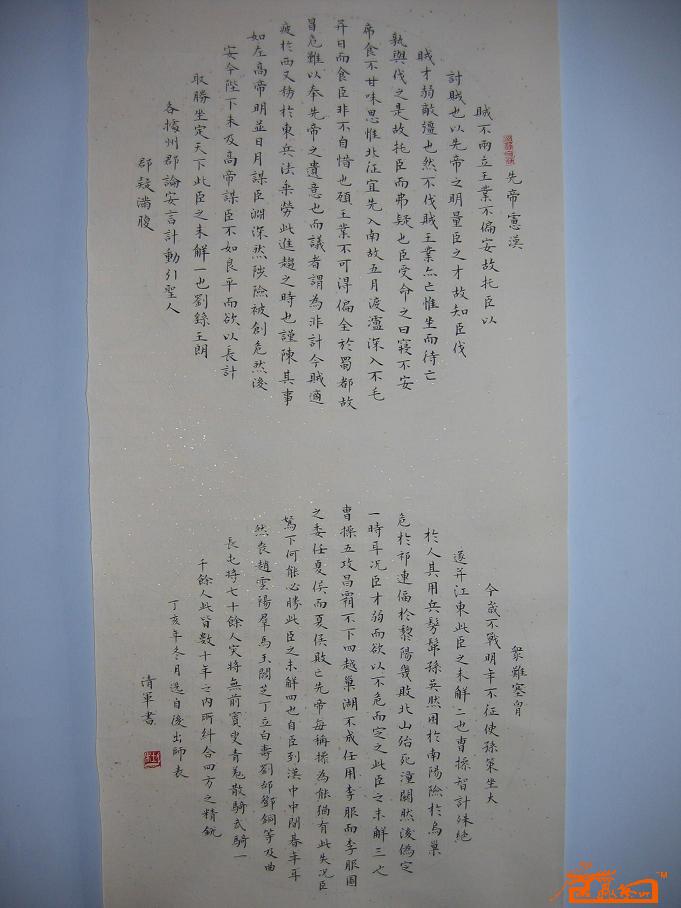 先帝慮漢
賊不兩立王業不偏安故托臣以
討賊也以先帝之明量臣之才故知臣伐
賊才弱敵彊也然不伐賊王業亦亡惟坐而待亡
孰與伐之是故托臣而弗疑也臣受命之日寢不安
席食不甘味思惟北征宜先入南故五月渡瀘深入不毛
并日而食臣非不自惜也顧王業不可得偏全於蜀都故
冒危難以奉先帝之遺意也而議者謂為非計今賊適
疲於西又務於東兵法乘勞此進趨之時也謹陳其事
如左高帝明並日月謀臣淵深然涉險被創危然後
安今陛下未及高帝謀臣不如良平而欲以長計
取勝坐定天下此臣之未解一也劉繇王朗
各據州郡論安言計動引聖人
群疑滿腹
眾難塞胸
今歲不戰明年不征使孫策坐大
遂并江東此臣之未解二也曹操智計殊絕
於人其用兵髣髴孫吳然困於南陽險於烏巢
危於祁連偪於黎陽幾敗北山殆死潼關然後偽定
一時耳況臣才弱而欲以不危而定之此臣之未解三也
曹操五攻昌霸不下四越巢湖不成任用李服而李服圖
之委任夏侯而夏侯敗亡先帝每稱操為能猶有此失況臣
駑下何能必勝此臣之未解四也自臣到漢中中間暮年耳
然喪趙雲陽羣馬玉閻芝丁立白壽劉郃鄧銅等及曲
長屯將七十餘人突將無前賨叟青羌散騎武騎一
千餘人此皆數十年之內所糾合四方之精銳
丁亥年冬月選自後出師表
清軍書